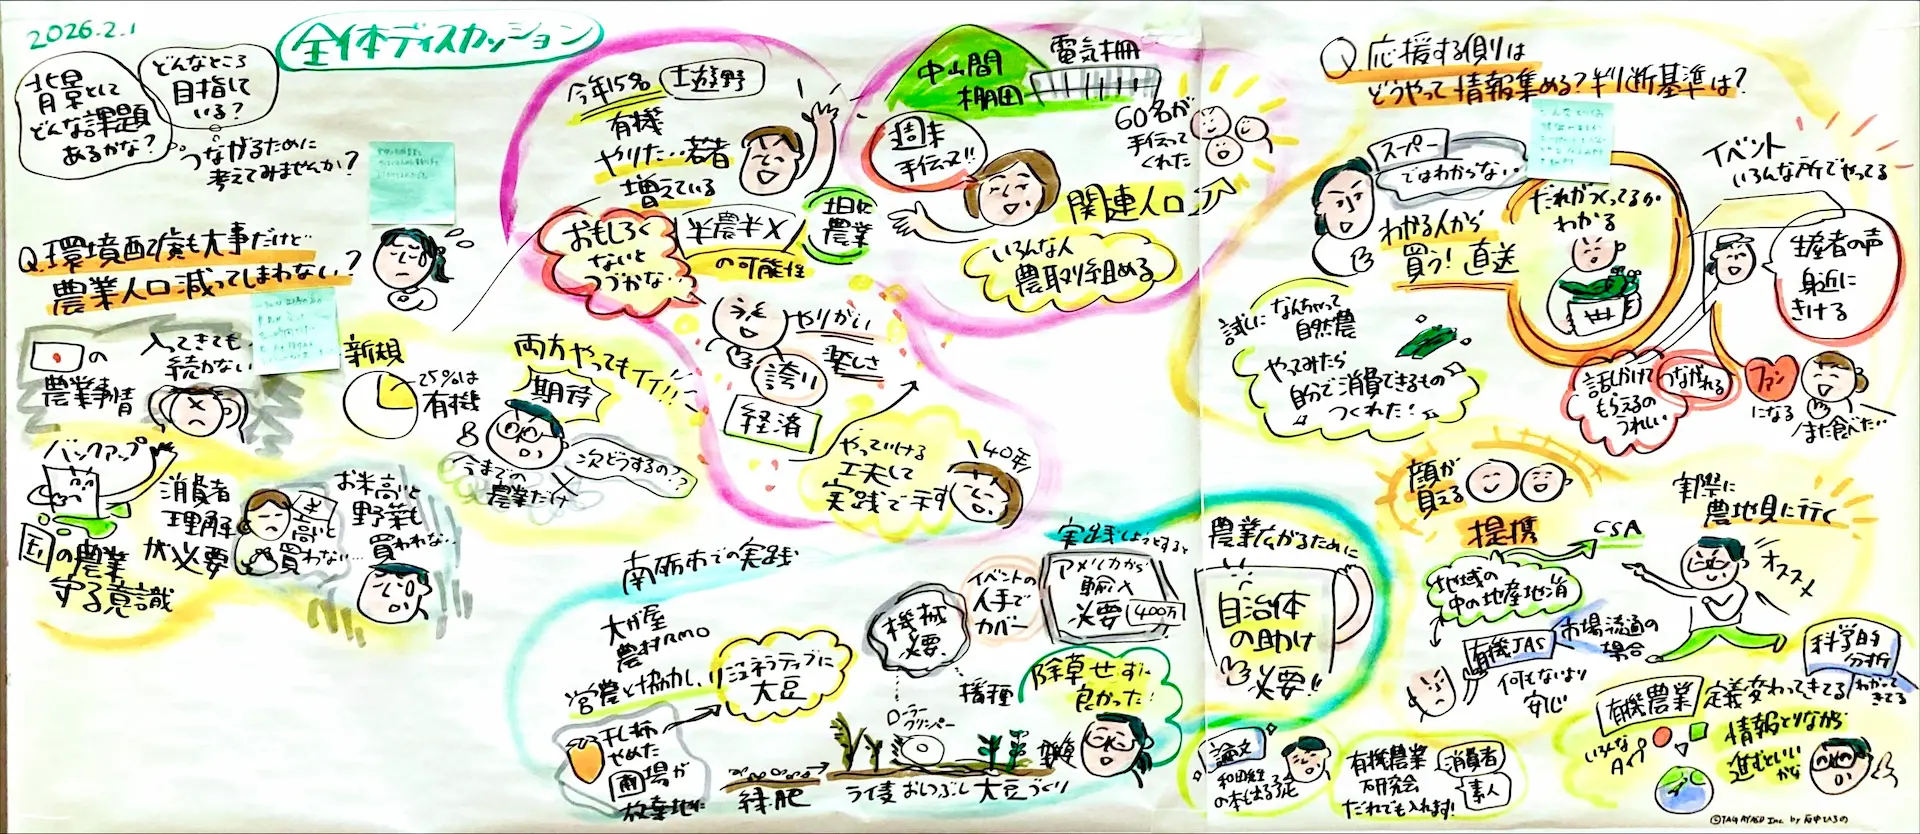 2026.2.1
全体ディスカッション
背景として
どんな課題
あるかな?
どんなところ
目指して
いる?
つながるために
考えてみませんか?
Q.環境配慮も大事だけど
農業人口減ってしまわない?
の
農業事情
入ってきても
続かない
新規
25%は
有機
両方やってもイイ!!
期待
今までの
農業だけ
次どうするの??
バックアップ
国の農業
守る意識
消費者
理解
が必要
高いと
買わない…
お米高いと
野菜も
買われない…
今年15名
土遊野
有機
やりた…若者
増えている
半農半X
の可能性
土日は
農業
おもしろく
ないと
つづかな…
やりがい
楽しさ
誇り
経済
やっていける
工夫して
実践で示す
40年
中山間
棚田
電気柵
週末
手伝って!!
60名が
手伝って
くれた
関連人口
いろんな人
農取り組める
南砺市での実践
大鋸屋
農村RMO
営農と協力し、
リジェネラティブに
大豆
干し柿
やめた
圃場が
放棄地に
緑肥
ローラー
クリンパー
ライ麦おしつぶし大豆づくり
機械
必要
播種
イベントの
人手で
カバー
実践しようとすると
アメリカから
輸入
必要
400万
除草せずに
良かった!
農業広がるために
自治体
の助け
必要!!
Q.応援する側は
どうやって情報集める?判断基準は?
スーパー
ではわからない
わかる人から
買う!直送
だれがつくってるか
わかる
イベント
いろんな所でやってる
生産者の声
身近に
きける
試しになんちゃって
自然農
やってみたら
自分で消費できるもの
つくれた!
話しかけて
もらえるの
うれしい
つながれる
ファン
になる
また食べた…
顔が
見える
提携
CSA
地域の
中の地産地消
実際に
農地見に行く
オススメ
有機JAS
市場流通の
場合
何もないより
安心
科学的
分析
わかって
きてる
有機農業
定義変わってきてる
いろんな
情報とりながら
進むといい
かな
論文
の本も出る予定
有機農業
研究会
だれでも入れます!
消費者
素人